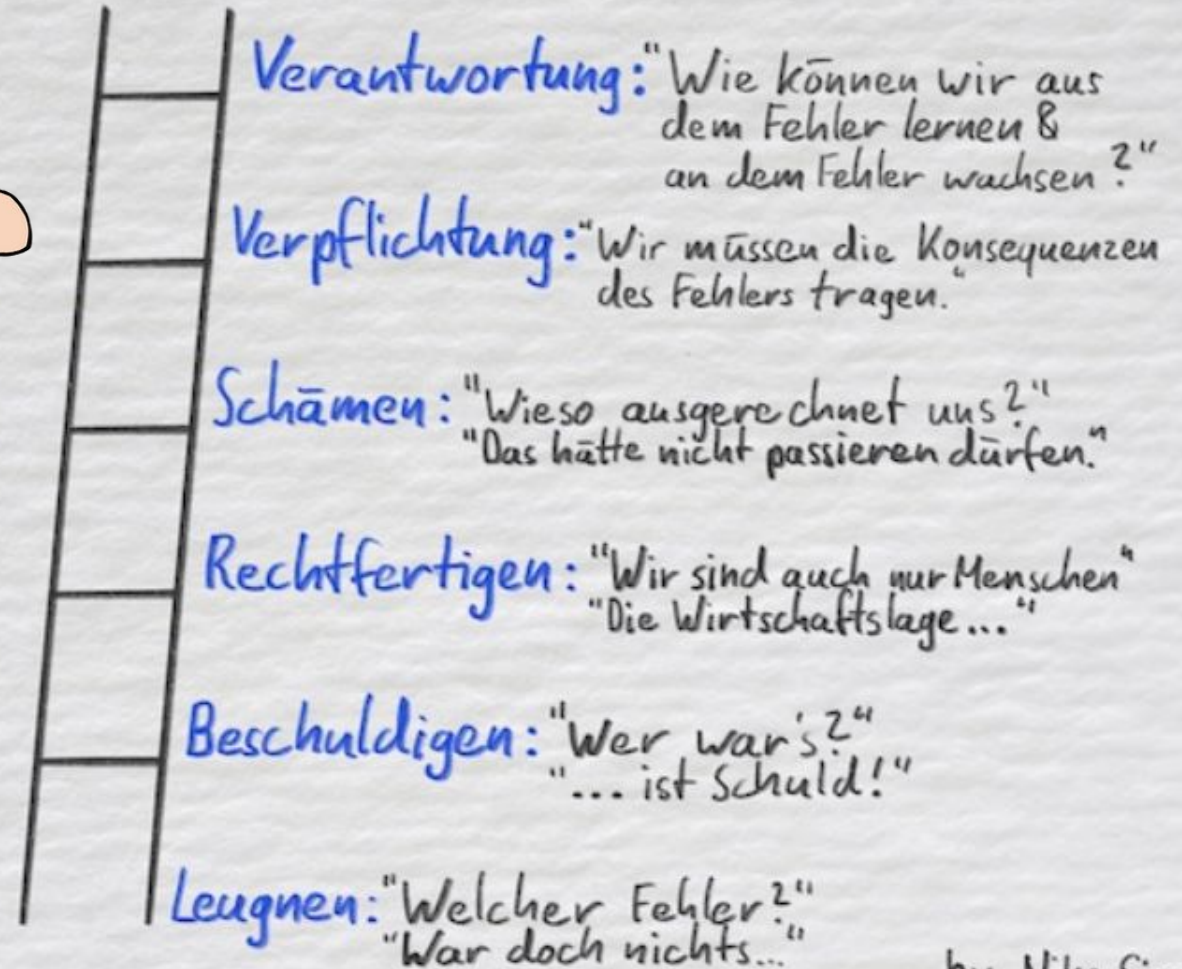 Verantwortung: "Wie können wir aus
dem Fehler lernen &
an dem Fehler wachsen?"
Verpflichtung: "Wir müssen die Konsequenzen
des Fehlers tragen."
Schämen: "Wieso ausgerechnet uns?"
"Das hätte nicht passieren dürfen."
Rechtfertigen: "Wir sind auch nur Menschen"
"Die Wirtschaftslage..."
Beschuldigen: "Wer war's?"
"... ist Schuld!"
Leugnen: "Welcher Fehler?"
"War doch nichts..."
by